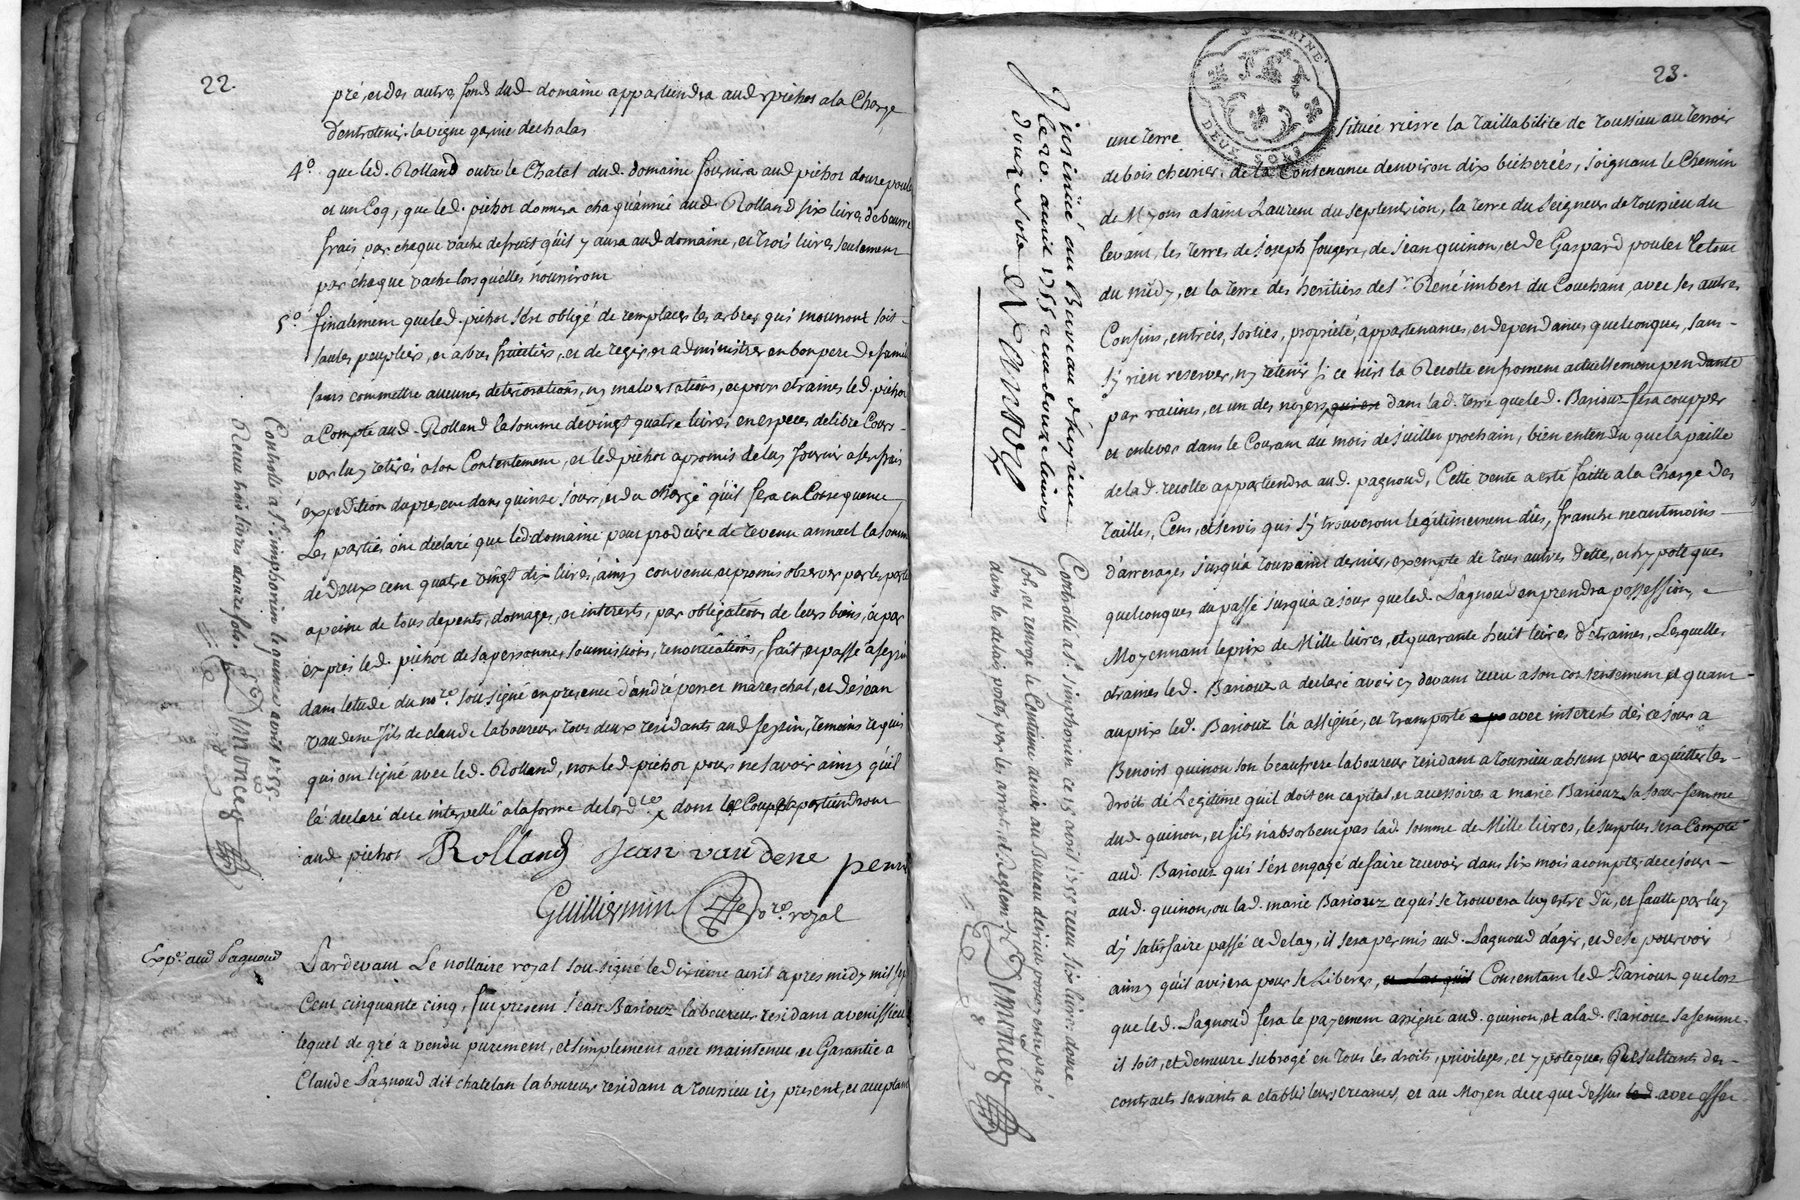 22.
pré, et des autres fonds dud. domaine appartiendra aud. pichot a la Charge
d'entretenir la vigne garnie dechalas
4.° que led. Rolland outre le Chatal dud. domaine fournira aud. pichot douze poules
et un Coq, que led. pichot donnera chaqu'année aud. Rolland six livres de beurre
frais par chaque vache de fruit qu'il y aura aud. domaine, et trois livres seulement
par chaque vache lorsqu'elles nouriront
5.° finalement que led. pichot s'est obligé de remplacer les arbres qui mourront soit
saules peupliers, et arbres fruitiers, et de regir, et administrer en bon pere de famille
sans commettre aucunes déteriorations, ny malversations, et pour etraines led. pichot
a Compté aud. Rolland la somme de vingt quatre livres en especes de libre Cours
par luy retirés a son Contentement, et led. pichot a promis de luy fournir a ses frais
expedition du present dans quinze jours, et du chargé qu'il fera en Consequence
Les parties ont declaré que led. domaine peut produire de revenu annuel la somme
de deux cent quatre vingt dix livres, ainsy convenu et promis observer par les parties
a peine de tous depents, domages, et interests, par obligations de leurs biens, et par
exprés led. pichot de sa personne, soumissions, renonciations, fait, et passé a feyzin
dans letude du no.re sousigné en presence d'andré perret mareschal, et de jean
vaudene fils de claude laboureur tous deux residants aud. feyzin, temoins requis
qui ont signé avec led. Rolland, non led. pichot pour ne savoir ainsy qu'il
l'a declaré de ce interpellé a la forme de lord.ce x dont les Coupes apartiendront
aud. pichot Rolland jean vaudene perret
Guilliermin no.re royal
Controllé a St. simphorien le quinze avril 1755.
Receu trois livres douze sols. Dimoncez
Exp.é aud. Pagnoud
Pardevant Le nottaire royal sousigné le dixieme avril apres midy mil sept
Cent cinquante cinq, fut present jean Bariouz laboureur residant a venissieu
lequel de gré a vendu purement, et simplement avec maintenue, et Garantie a
Claude Pagnoud dit chatelan laboureur residant a toussieu icy present, et acceptant
23.
DEUX SOLS
une terre située riere la taillabilité de toussieu au terroir
de bois chevrier, de la Contenance d'environ dix bicherées, joignant le Chemin
de Myons a saint Laurent du septentrion, la terre du seigneur de toussieu du
levant, les terres de joseph fougere, de jean quinon, et de Gaspard poulet le tout
du midy, et la terre des heritiers de Sr. René imbert du Couchant, avec ses autres
Confins, entrées, sorties, proprieté, appartenances, et dependances quelconques, sans
s'y rien reserver, ny retenir si ce n'est la Recolte en froment actuellement pendante
par racines, et un des noyers qui est dans lad. terre que led. Bariouz fera coupper
et enlever dans le Courant du mois de juillet prochain, bien entendu que la paille
de lad. recolte appartiendra aud. pagnoud, Cette vente a esté faitte a la Charge des
tailles, Cens, et servis qui s'y trouveront legitimement dûs, franche neantmoins
d'arrerages jusqu'a toussaint dernier, exempte de tous autres dettes, et hypoteques
quelconques du passé jusqu'a ce jour que led. Pagnoud en prendra possession, et
Moyennant le prix de Mille livres, et quarante huit livres d'étraines, Lesquelles
etraines led. Bariouz a declaré avoir cy devant receu a son contentement, et quant
au prix led. Bariouz l'a assigné, et transporté a po avec interests dés ce jour a
Benoist quinon son beaufrere laboureur residant a toussieu absent pour aquitter les
droits de Legitime quil doit en capital, et accessoire a marie Bariouz sa sœur femme
dud. quinon, et s'ils n'absorbent pas lad. somme de Mille livres, le surplus sera Compté
aud. Bariouz qui s'est engagé de faire recevoir dans six mois a compter de ce jour
aud. quinon, ou lad. marie Bariouz ce qui se trouvera luy estre dû, et fautte par luy
d'y satisfaire passé ce delay, il sera permis aud. Pagnoud d'agir, et de se pourvoir
ainsy qu'il avisera pour se Liberer, Consentant led. Bariouz que lors
que led. Pagnoud fera le payement assigné aud. quinon, et a lad. Bariouz sa femme
il soit, et demeure subrogé en tous les droits, privileges, et ypoteques Resultants des
contracts servants a etablir leurs creances, et au Moyen de ce que dessus led. avec effet
Insinüé au Bureau d'heyrieu
le 20 avril 1755 receu douze livres
douze sols
Controllé a St. simphorien ce 15 avril 1755 receu six livres douze
sols, et renvoyé le Centieme denier au Bureau d'eirieu pour y être payé
dans les delais portés par les arrets et Reglem.ts Dimoncez